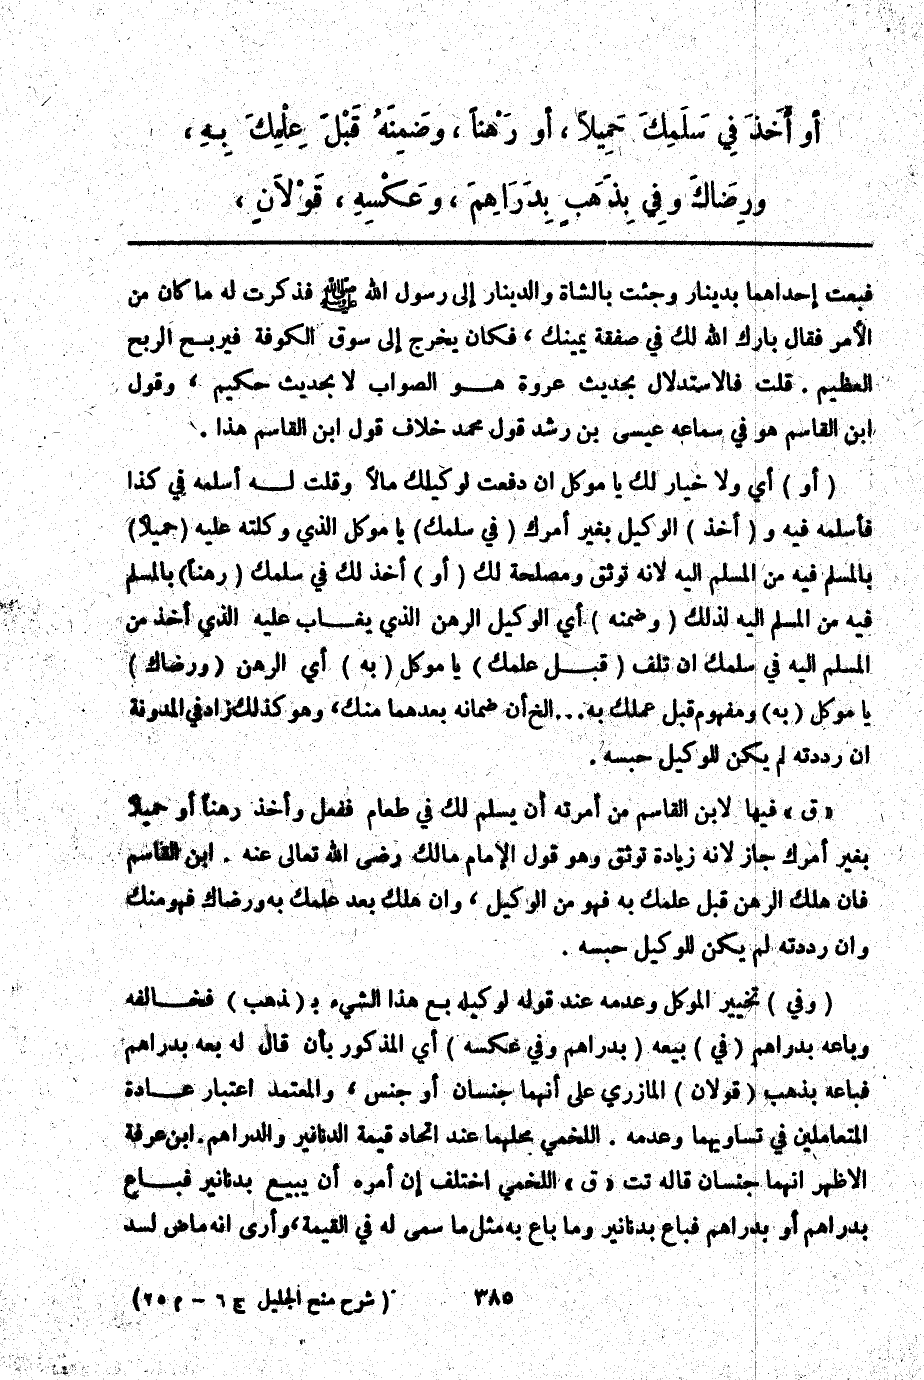 أو أَخَذَ فِي سَلَمِكَ حَمِيلاً ، أو رَهْناً ، وضَمِنَهُ قَبْلَ عِلْمِكَ بِهِ ،
ورِضَاكَ وفِي بِذَهَبٍ بِدَرَاهِمَ ، وعَكْسِهِ ، قَوْلاَنِ ،
فبعت إحداهما بدينار وجئت بالشاة والدينار إلى رسول الله ﷺ فذكرت له ما كان من
الأمر فقال بارك الله لك في صفقة يمينك ، فكان يخرج إلى سوق الكوفة فيربح الربح
العظيم . قلت فالاستدلال بحديث عروة هو الصواب لا بحديث حكيم ، وقول
ابن القاسم هو في سماعه عيسى بن رشد قول محمد خلاف قول ابن القاسم هذا .
( أو ) أي ولا خيار لك يا موكل ان دفعت لوكيلك مالاً وقلت له أسلمه في كذا
فأسلمه فيه و ( أخذ ) الوكيل بغير أمرك ( في سلمك ) يا موكل الذي وكلته عليه ( حميلاً )
بالمسلم فيه من المسلم اليه لانه توثق ومصلحة لك ( أو ) أخذ لك في سلمك ( رهناً ) بالمسلم
فيه من المسلم اليه لذلك ( وضمنه ) أي الوكيل الرهن الذي يغاب عليه الذي أخذ من
المسلم اليه في سلمك ان تلف ( قبل علمك ) يا موكل ( به ) أي الرهن ( ورضاك )
يا موكل ( به ) ومفهوم قبل عملك به ... الخ أن ضمانه بعدهما منك ، وهو كذلك زاد في المدونة
ان رددته لم يكن للوكيل حبسه .
« ق » فيها لابن القاسم من أمرته أن يسلم لك في طعام ففعل وأخذ رهناً أو حميلاً
بغير أمرك جاز لانه زيادة توثق وهو قول الإمام مالك رضى الله تعالى عنه . ابن القاسم
فان هلك الرهن قبل علمك به فهو من الوكيل ، وان هلك بعد علمك به ورضاك فهو منك
وان رددته لم يكن للوكيل حبسه .
( وفي ) تخيير الموكل وعدمه عند قوله لوكيله بع هذا الشيء بـ ( ـذهب ) فخالفه
وباعه بدراهم ( في ) بيعه ( بدراهم وفي عكسه ) أي المذكور بأن قال له بعه بدراهم
فباعه بذهب ( قولان ) المازري على أنهما جنسان أو جنس ، والمعتمد اعتبار عادة
المتعاملين في تساويهما وعدمه . اللخمي محلهما عند اتحاد قيمة الدنانير والدراهم . ابن عرفة
الاظهر انهما جنسان قاله تت « ق » اللخمي اختلف إن أمره أن يبيع بدنانير فباع
بدراهم أو بدراهم فباع بدنانير وما باع به مثل ما سمى له في القيمة ، وأرى انه ماض لسد
٣٨٥ ( شرح منح الجليل ج ٦ – م ٢٥ )